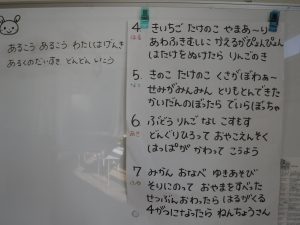 あるこう あるこう わたしはげんき
あるくのだいすき どんどん いこう
4 きいちご たけのこ やまあ〜り
はる あわふきむしに かえるがぴょんぴょん
はたけをぬけたら りんごのき
5 きのこ たけのこ くさがぼわぁ〜
せみがみんみん とりもとんできた
かいだんのぼったら でいらぼっちゃ
6 ぶどう りんご なし こすもす
あき どんぐりひろって おやこえんそく
はっぱが かわって こうよう
7 みかん おなべ ゆきあそび
ふゆ そりにのって おやまをすべった
せつぶん おわったら はるがくる
4がつになったら ねんちょうさん